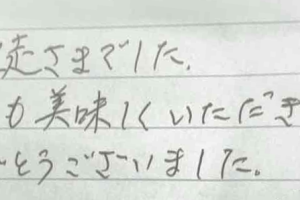 走さまでした.
も美味しくいただき
とうございました。